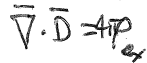 ∇̅ · D̅ = 4πρ_ex